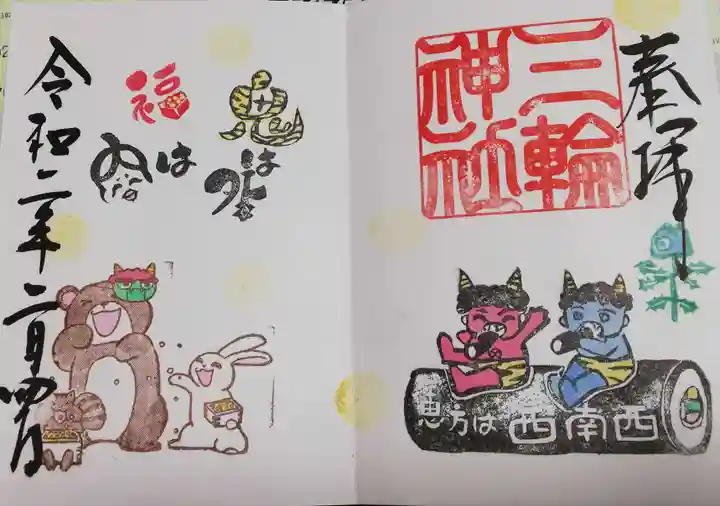 奉拝
三輪
神社
恵方は西南西
鬼は外
福は内
令和二年二月四日